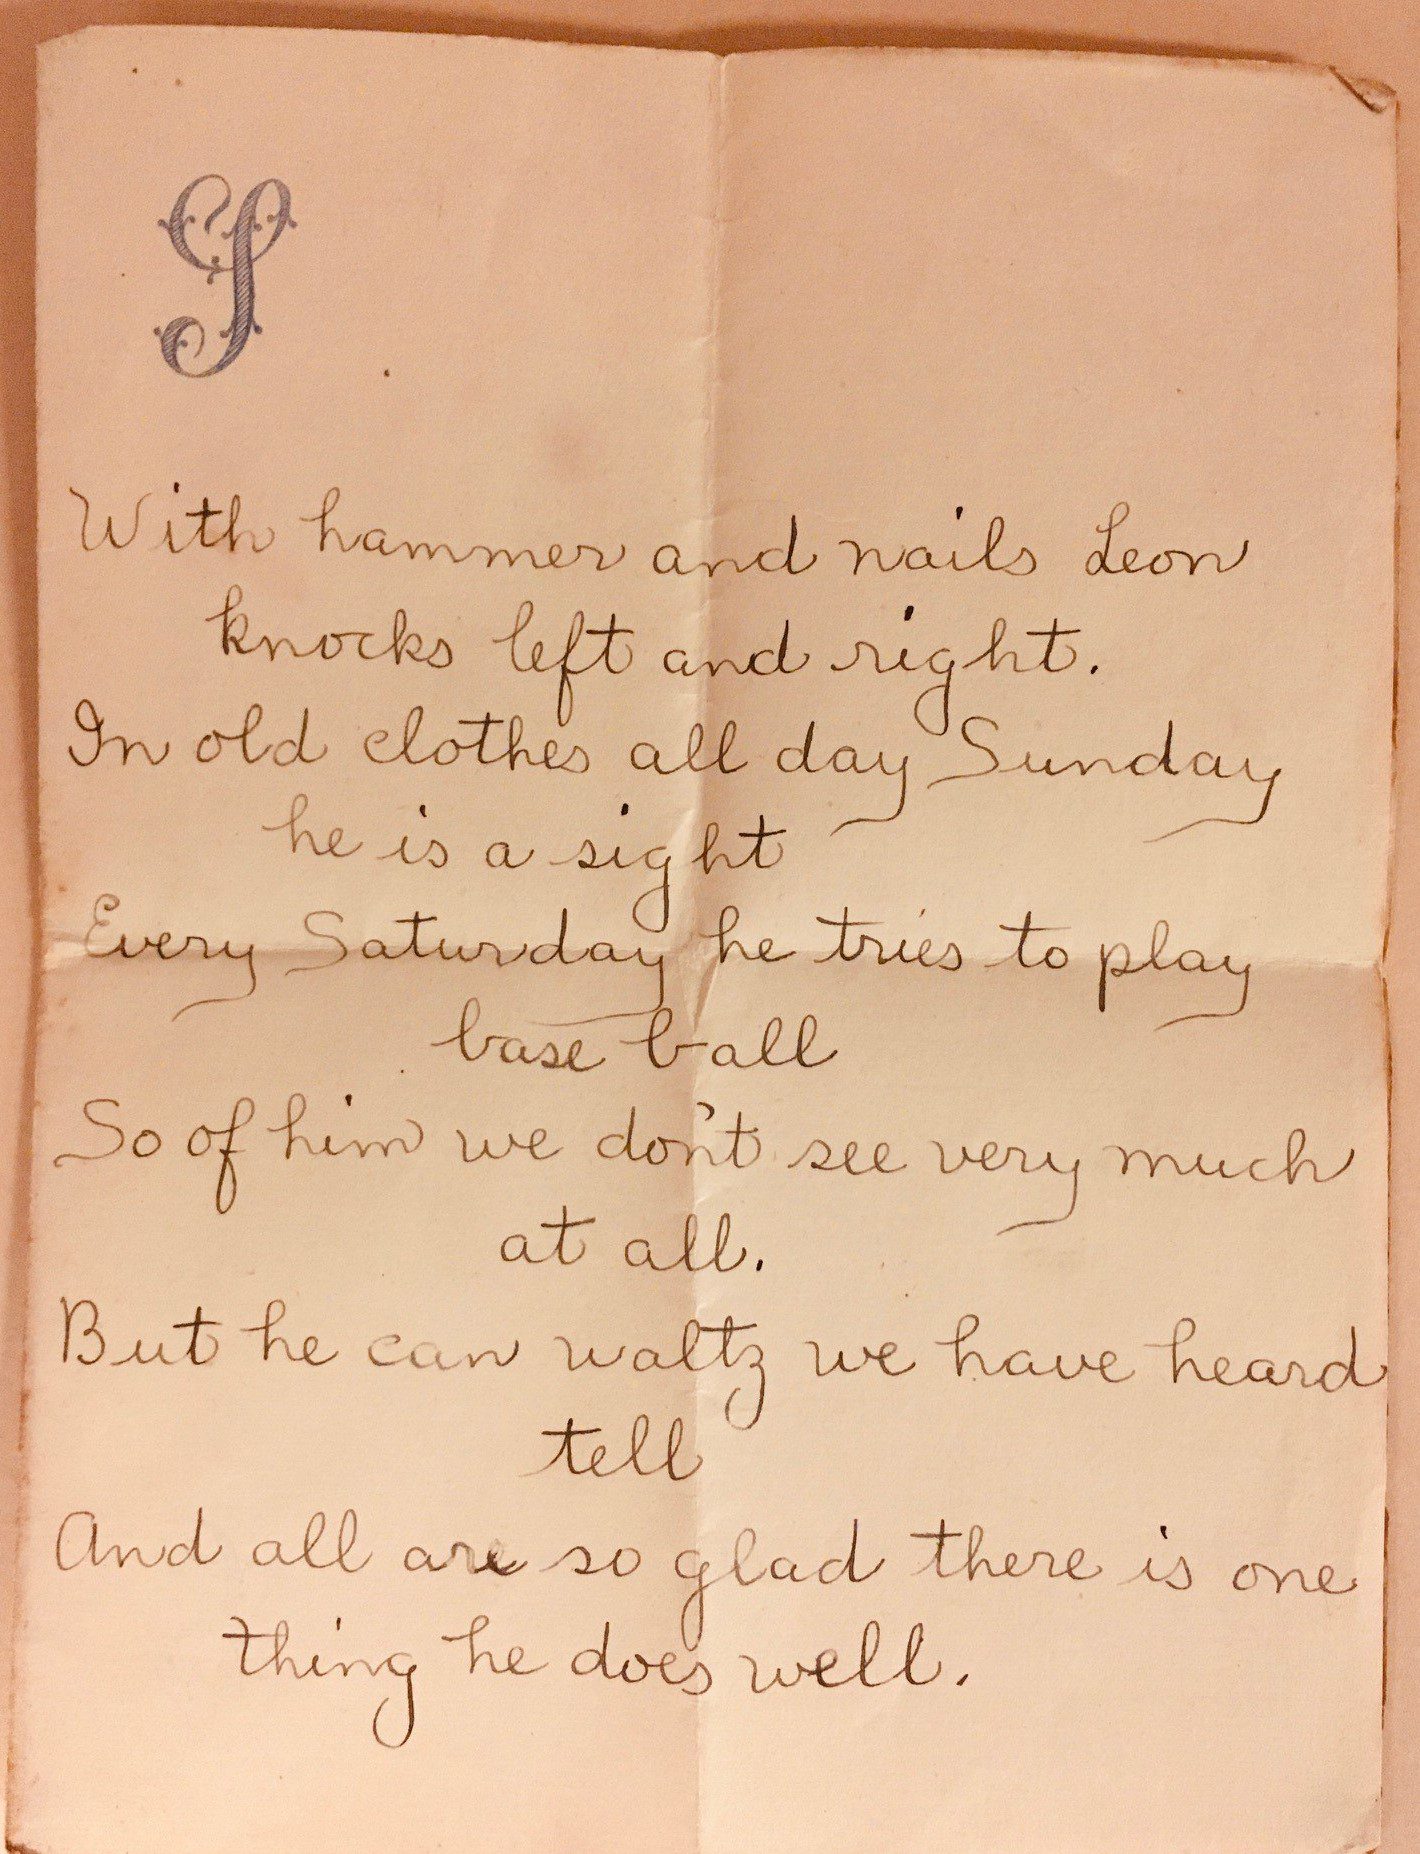 With hammer and nails Leon
knocks left and right.
In old clothes all day Sunday
he is a sight
Every Saturday he tries to play
base ball
So of him we don't see very much
at all.
But he can waltz we have heard
tell
And all are so glad there is one
thing he does well.